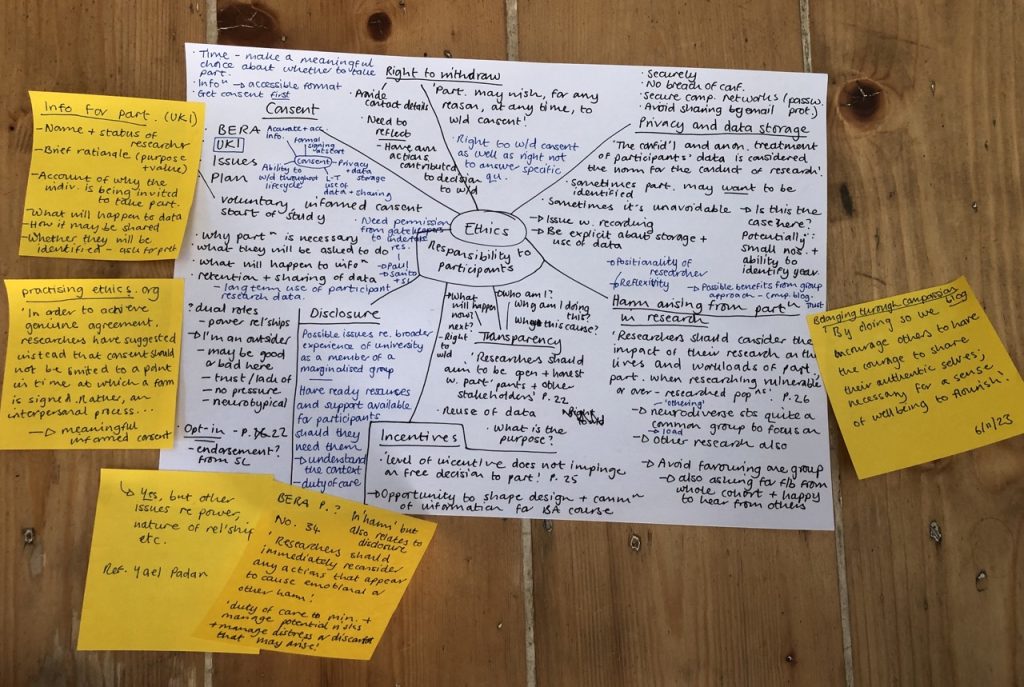 Info for part. (UKI)
- Name + status of
researcher
- Brief rationale (purpose
+ value)
- Account of why the
indiv. is being invited
to take part.
- What will happen to data
- How it may be shared
- Whether they will be
identified - ask for pref
practising ethics.org
'In order to achieve
genuine agreement,
researchers have suggested
instead that consent should
not be limited to a point
in time at which a form
is signed. Rather, an
interpersonal process...
→ meaningful
informed consent
↳ Yes, but other
issues re power,
nature of rel'ship
etc.
Ref. Yael Padan
BERA P.?
No. 34
In 'harm' but
also relates to
disclosure
'Researchers should
immediately reconsider
any actions that appear
to cause emotional or
other harm!
'duty of care to min. +
manage potential risks
+ manage distress or discomfort
that may arise!
· Time - make a meaningful
choice about whether to take
part.
· Infoⁿ → accessible format
· Get consent first
Consent
· BERA
UKI
Issues
Plan
Accurate + acc.
info.
formal
signing
at start
Consent
Privacy
+ data
storage
Ability to
w/d throughout
lifecycle
L-T
use of
data + sharing
· voluntary informed consent
start of study
· Need permission
from gatekeepers
to undertake
res.
→ Paul
→ Santo
+ SL
· Why partⁿ is necessary
· What they will be asked to do
· What will happen to infoⁿ
· retention + sharing of data
- long term use of participant
research data.
Right to withdraw
· Provide
contact details
· Need to
reflect
- Have our
actions
contributed
to decision
to w/d
'Part. may wish, for any
reason, at any time, to
w/d consent!
· Right to w/d consent
as well as right not
to answer specific
qu.
· Securely
· No breach of conf.
· Secure comp. networks (passw.
prot.)
· Avoid sharing by email
Privacy and data storage
· 'The confid'l and anon. treatment
of participants' data is considered
the norm for the conduct of research!
· Sometimes part. may want to be
identified
· Sometimes it's unavoidable
→ Is this the
case here?
Potentially:
small nos. +
ability to
identify year.
→ Issue w. recording
→ Be explicit about storage +
use of data
Ethics
Responsibility to
Participants
→ Positionality of
researcher
↳ Reflexivity
→ Possible benefits from group
approach - comp. blog
- trust
Harm arising from partⁿ
in research
'Researchers should consider the
impact of their research on the
lives and workloads of part.,
part. when researching vulnerable
or over-researched popⁿs! P.26
'othering'
→ neurodiverse sts quite a
common group to focus on
→ load
→ Other research also
→ Avoid favouring one group
→ also asking for f/b from
whole cohort + happy
to hear from others
Disclosure
Possible issues re. broader
experience of university
as a member of a
marginalised group
Have ready resources
and support available
for participants
should they
need them
→ understand
the context
- duty of care
? dual roles
- power rel'ships
→ I'm an outsider
- may be good
or bad here
- trust / lack of
- no pressure
- neurotypical
· Opt-in - P.22
- endorsement?
from SL
· What
will happen
now?
next?
- Right
to
w/d
→ Who am I?
Why am I doing
this?
Why this cause?
Transparency
'Researchers should
aim to be open + honest
w. part'pants + other
stakeholders' P.22
· Reuse of data
Right
to w/d
· What is the
purpose?
Incentives
· 'level of incentive does not impinge
on free decision to part! P.25
→ Opportunity to shape design + commⁿ
of information for BA course
Belonging through compassion
blog
'By doing so we
encourage others to have
the courage to share
their authentic selves;
necessary for a sense
of wellbeing to flourish!
6/11/23